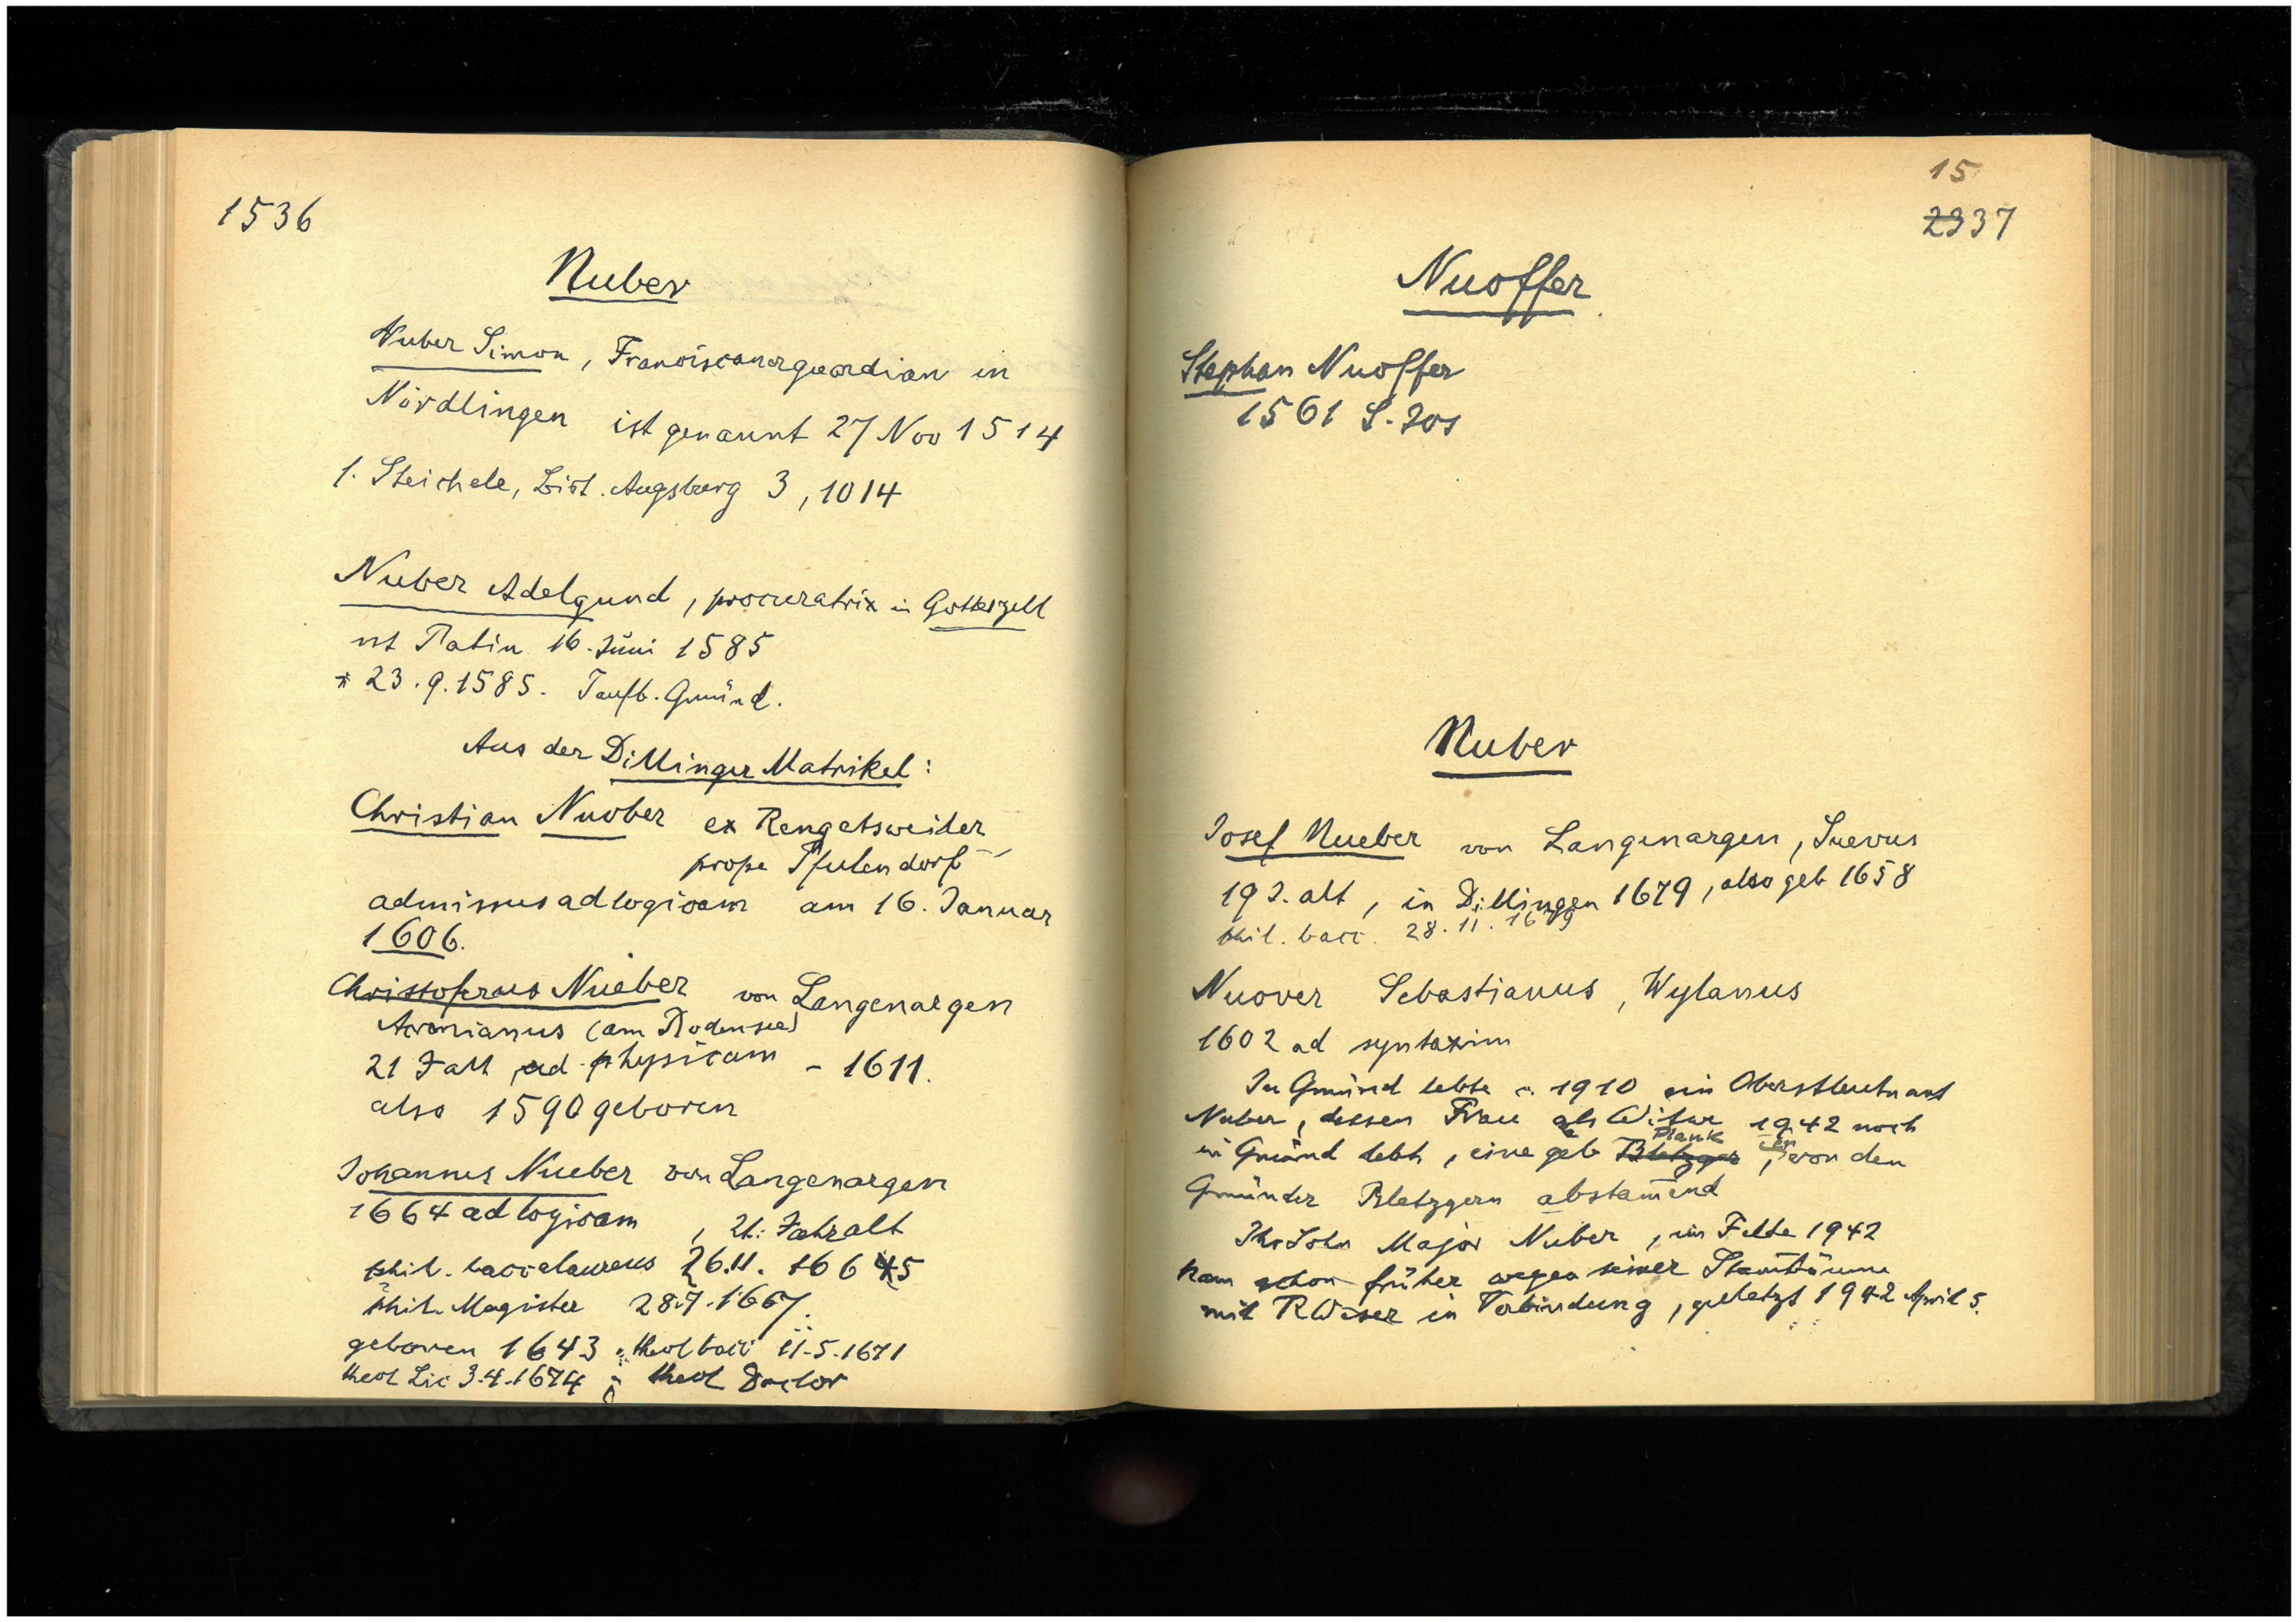 1536
Nuber
Nuber Simon, Franciscanerguardian in
Nördlingen ist genannt 27 Nov 1514
1. Steichele, Bist. Augsburg 3, 1014
Nuber Adelgund, procuratrix in Gotteszell
ist Patin 16. Juni 1585
* 23.9.1585. Taufb. Gmünd.
Aus der Dillinger Matrikel:
Christian Nuober ex Rengetsweiler
prope Pfulendorf
admissus ad logicam am 16. Januar
1606.
Christoferus Nueber von Langenargen
Acronianus (am Bodensee)
21 J alt, ad physicam - 1611.
also 1590 geboren
Johannes Nueber von Langenargen
1664 ad logicam, 21. Jahr alt
phil. baccalaureus 26.11. 1665
phil. Magister 28.7.1667.
geboren 1643; theol bacc 11.5.1671
theol Lic 3.4.1674; theol Doctor
15
2337
Nuoffer
Stephan Nuoffer
1561 S. Jos
Nuber
Josef Nueber von Langenargen, Suevus
19 J. alt, in Dillingen 1679, also geb 1658
phil. bacc. 28.11.1679
Nuover Sebastianus, Wylanus
1602 ad syntaxim
In Gmünd lebte c. 1910 ein Oberstleutnant
Nuber, dessen Frau als Witwe 1942 noch
in Gmünd lebt, eine geb Bletzger Plank, von den
Gmünder Bletzgern abstam̄end
Ihr Sohn Major Nuber, im Felde 1942
kam schon früher wegen seiner Stam̄bäume
mit R Weser in Verbindung, zuletzt 1942 April 5.